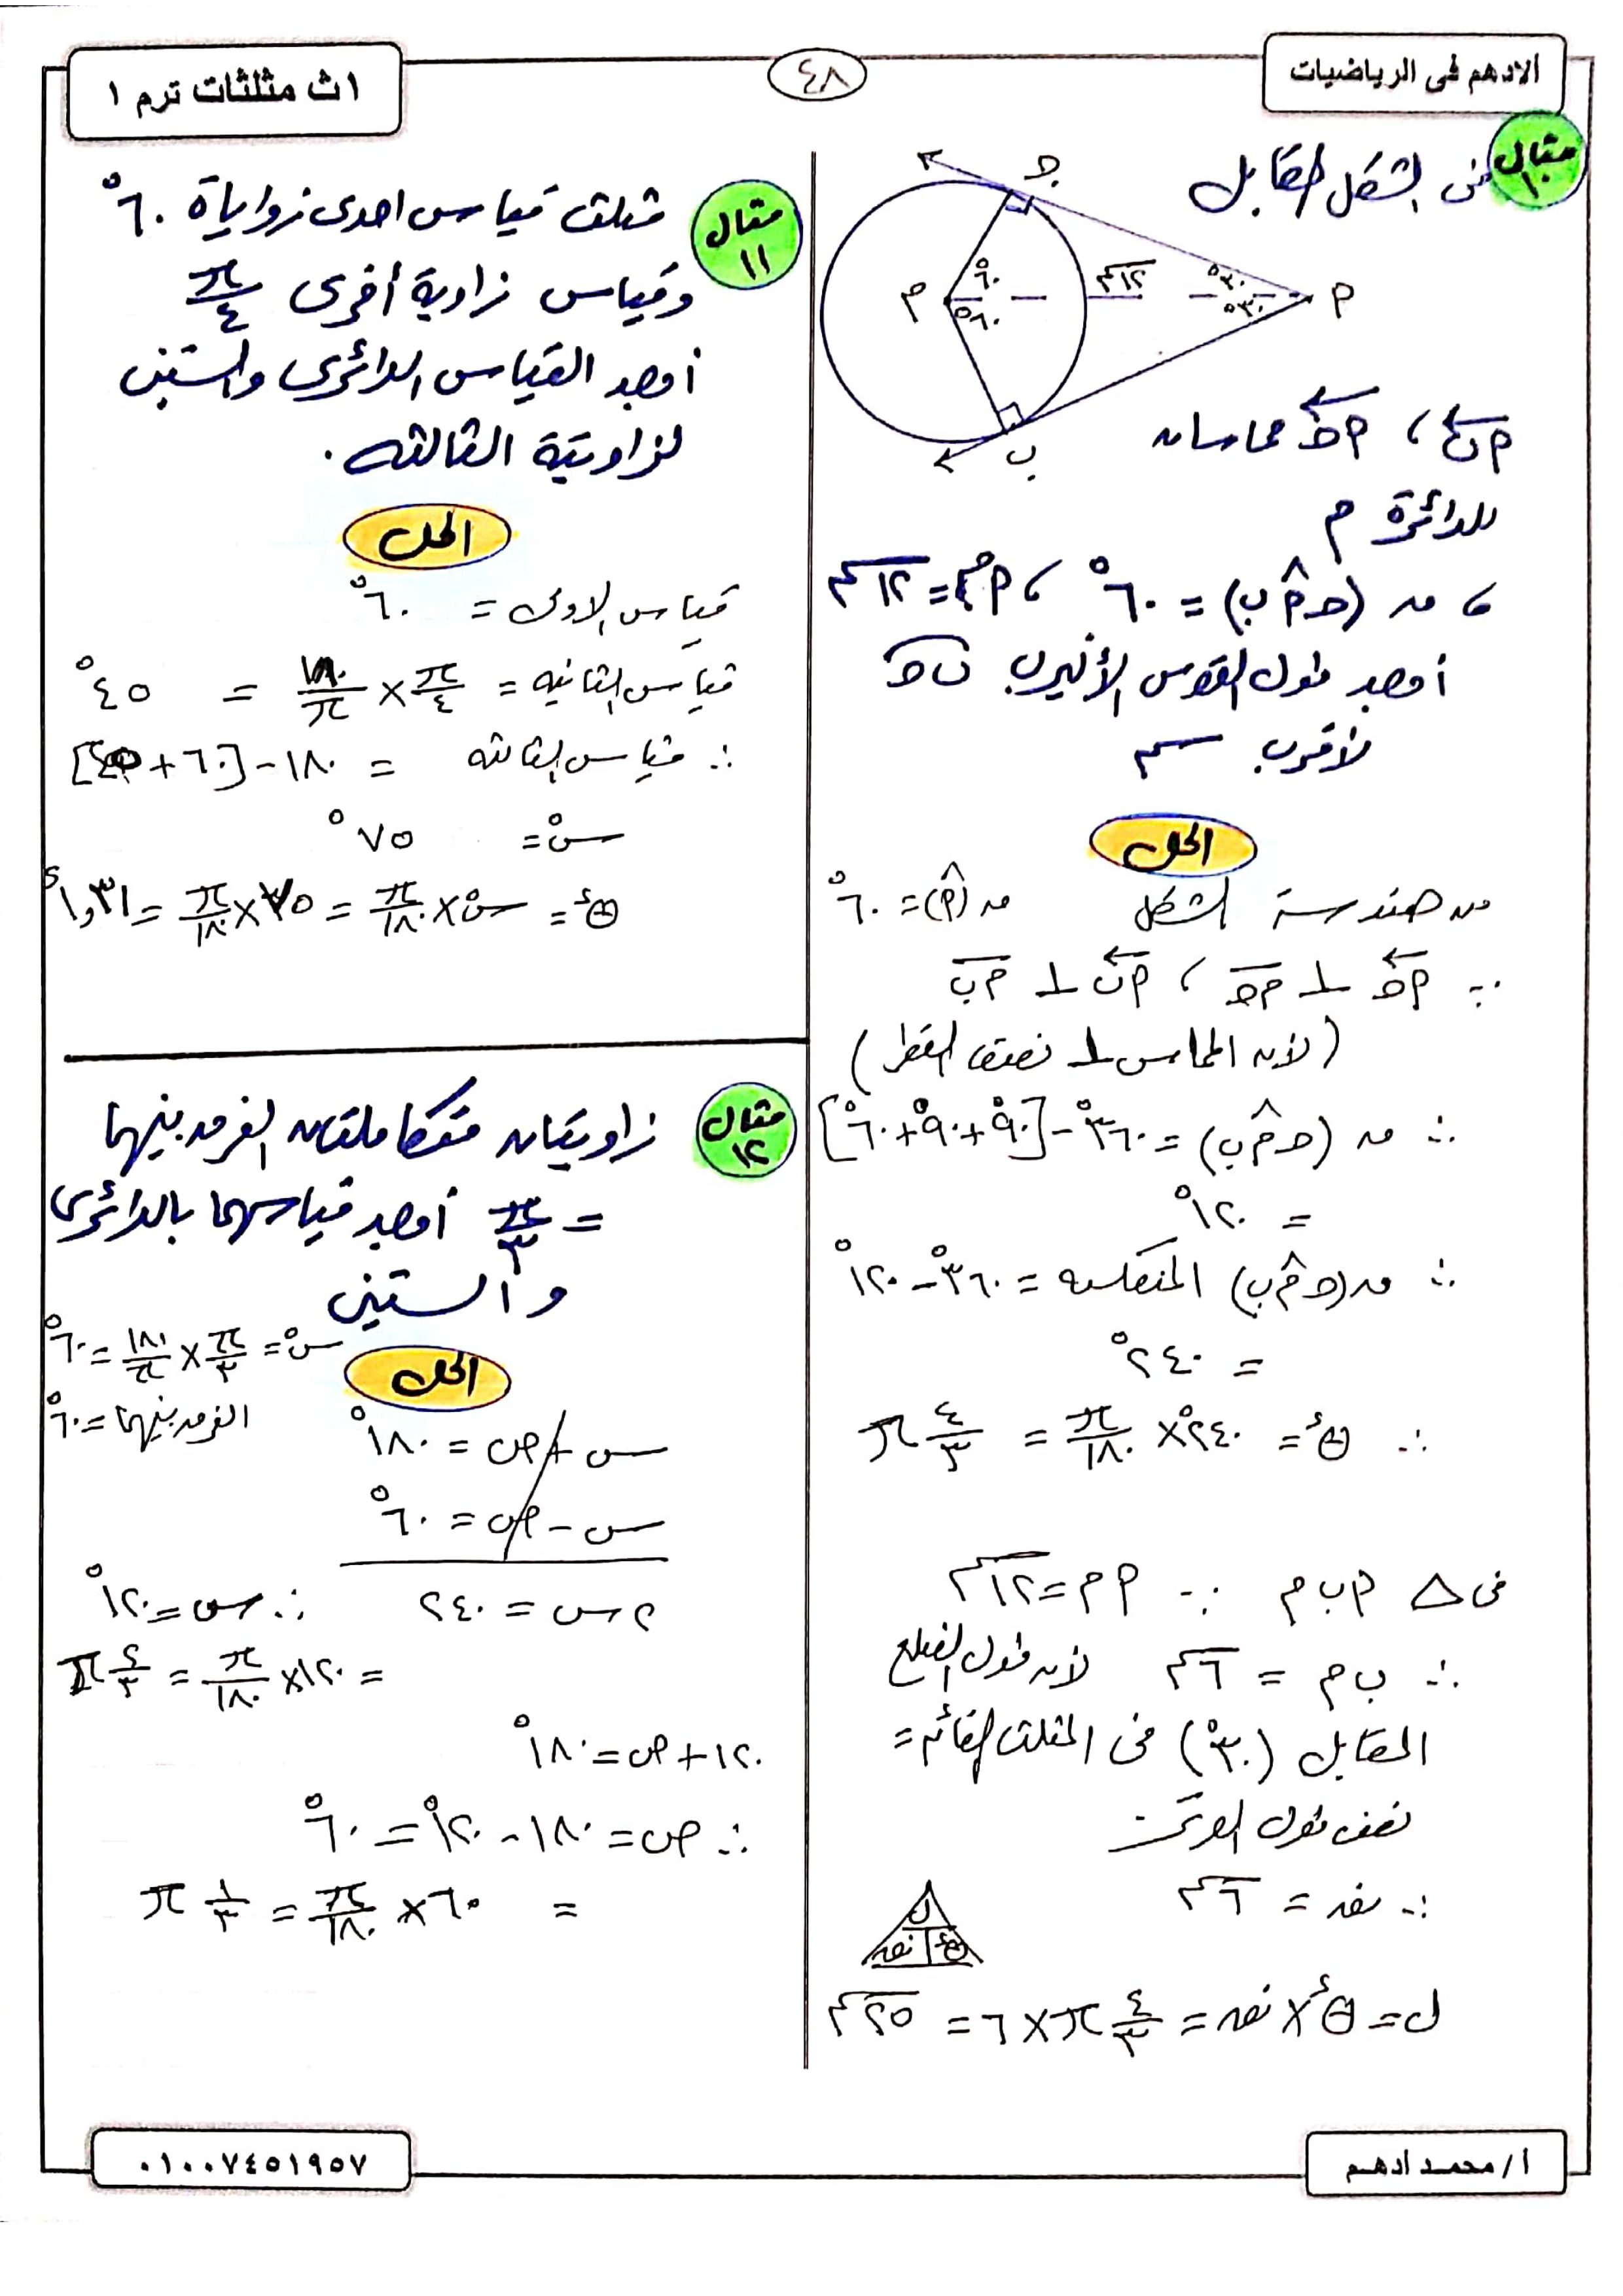 الادهم فى الرياضيات
٤٨
١ث مثلثات ترم ١
مثال ١٠
فى الشكل المقابل
جـ
٦٠°
٦٠°
١٢سم
٣٠°
٣٠°
م
أ
ب
أب ، أجـ مماسان
للدائرة م
، ق (جـ أ ب) = ٦٠° ، أم = ١٢سم
أوجد طول القوس الأكبر ب جـ
لأقرب سم
الحل
من هندسة الشكل ق(أ) = ٦٠°
∵ أجـ ⊥ مجـ ، أب ⊥ مب
(لأن المماس ⊥ نصف القطر)
∴ ق (جـ م ب) = ٣٦٠° - [٩٠° + ٩٠° + ٦٠°]
= ١٢٠°
∴ ق(جـ م ب) المنعكسة = ٣٦٠° - ١٢٠°
= ٢٤٠°
∴ θء = ٢٤٠° × π/١٨٠ = ٤/٣ π
فى △ أ ب م ∵ أ م = ١٢سم
∴ ب م = ٦سم لأن طول الضلع
المقابل (٣٠°) فى المثلث القائم =
نصف طول الوتر
∴ نق = ٦سم
ل
θء نق
ل = θء × نق = ٤/٣ π × ٦ = ٢٥سم
مثال ١١
مثلث قياس احدى زواياة ٦٠°
وقياس زاوية أخرى π/٤
أوجد القياس الدائرى والستينى
لزاويتة الثالثه .
الحل
قياس الاولى = ٦٠°
قياس الثانيه = π/٤ × ١٨٠/π = ٤٥°
∴ قياس الثالثه = ١٨٠ - [٦٠ + ٤٥]
س° = ٧٥°
θء = س° × π/١٨٠ = ٧٥ × π/١٨٠ = ١,٣١ء
مثال ١٢
زاويتان متكاملتان الفرق بينهما
= π/٣ أوجد قياسهما بالدائرى
والستينى
س° = π/٣ × ١٨٠/π = ٦٠°
الحل
الفرق بينهما = ٦٠°
س + ص = ١٨٠°
س - ص = ٦٠°
٢س = ٢٤٠ ∴ س = ١٢٠°
= ١٢٠ × π/١٨٠ = ٢/٣ π
١٢٠ + ص = ١٨٠°
∴ ص = ١٨٠ - ١٢٠° = ٦٠°
= ٦٠ × π/١٨٠ = ١/٣ π
أ / محمد ادهم
٠١٠٠٧٤٥١٩٥٧